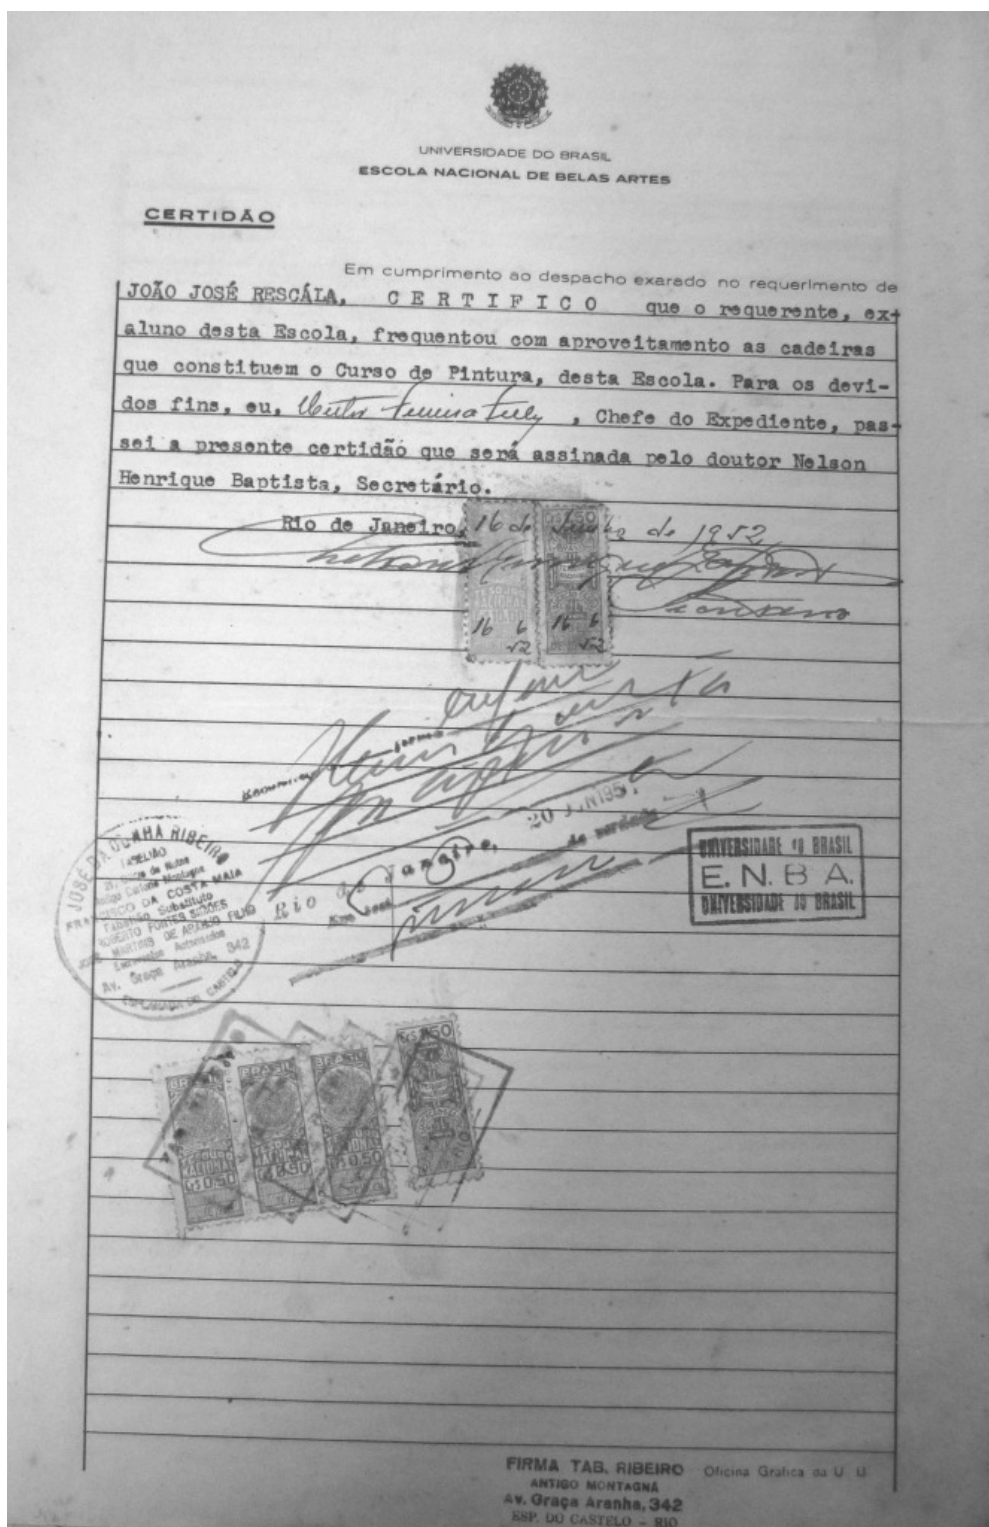 UNIVERSIDADE DO BRASIL
ESCOLA NACIONAL DE BELAS ARTES
CERTIDÃO
Em cumprimento ao despacho exarado no requerimento de
JOÃO JOSÉ RESCÁLA, C E R T I F I C O que o requerente, ex-
aluno desta Escola, frequentou com aproveitamento as cadeiras
que constituem o Curso de Pintura, desta Escola. Para os devi-
dos fins, eu, , Chefe do Expediente, pas-
sei a presente certidão que será assinada pelo doutor Nelson
Henrique Baptista, Secretário.
Rio de Janeiro, 16 de Junho de 1952
16 6 52
16 6 52
20 JUN 195
Rio de Janeiro,
da verdade
JOSÉ DA CUNHA RIBEIRO
TABELIÃO
FRANCISCO DA COSTA MAIA
Tabelião Substituto
ROBERTO FONTES SIMÕES
JOSÉ MARTINS DE ARAUJO FILHO
Escreventes Autorizados
Av. Graça Aranha, 342
ESPLANADA DO CASTELO
UNIVERSIDADE DO BRASIL
E. N. B A.
UNIVERSIDADE DO BRASIL
BRASIL
BRASIL
BRASIL
TESOURO NACIONAL
Cr$ 0,50
Cr$ 0,50
FIRMA TAB. RIBEIRO
ANTIGO MONTAGNA
Av. Graça Aranha, 342
ESP. DO CASTELO – RIO
Oficina Gráfica da U. B.